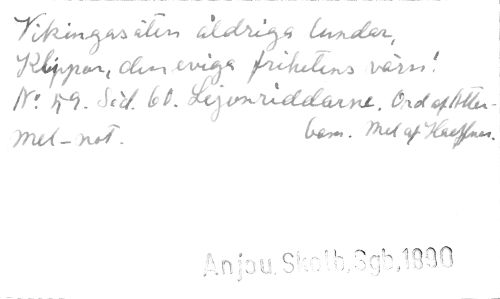 Vikingasäten åldriga lundar,
Klippor, den eviga frihetens värn!
No 59. Sid. 60. Lejonriddarne. Ord af Atter-
mel-not. bom. Mel af Haeffner.
Anjou, Skolb, Sgb, 1890